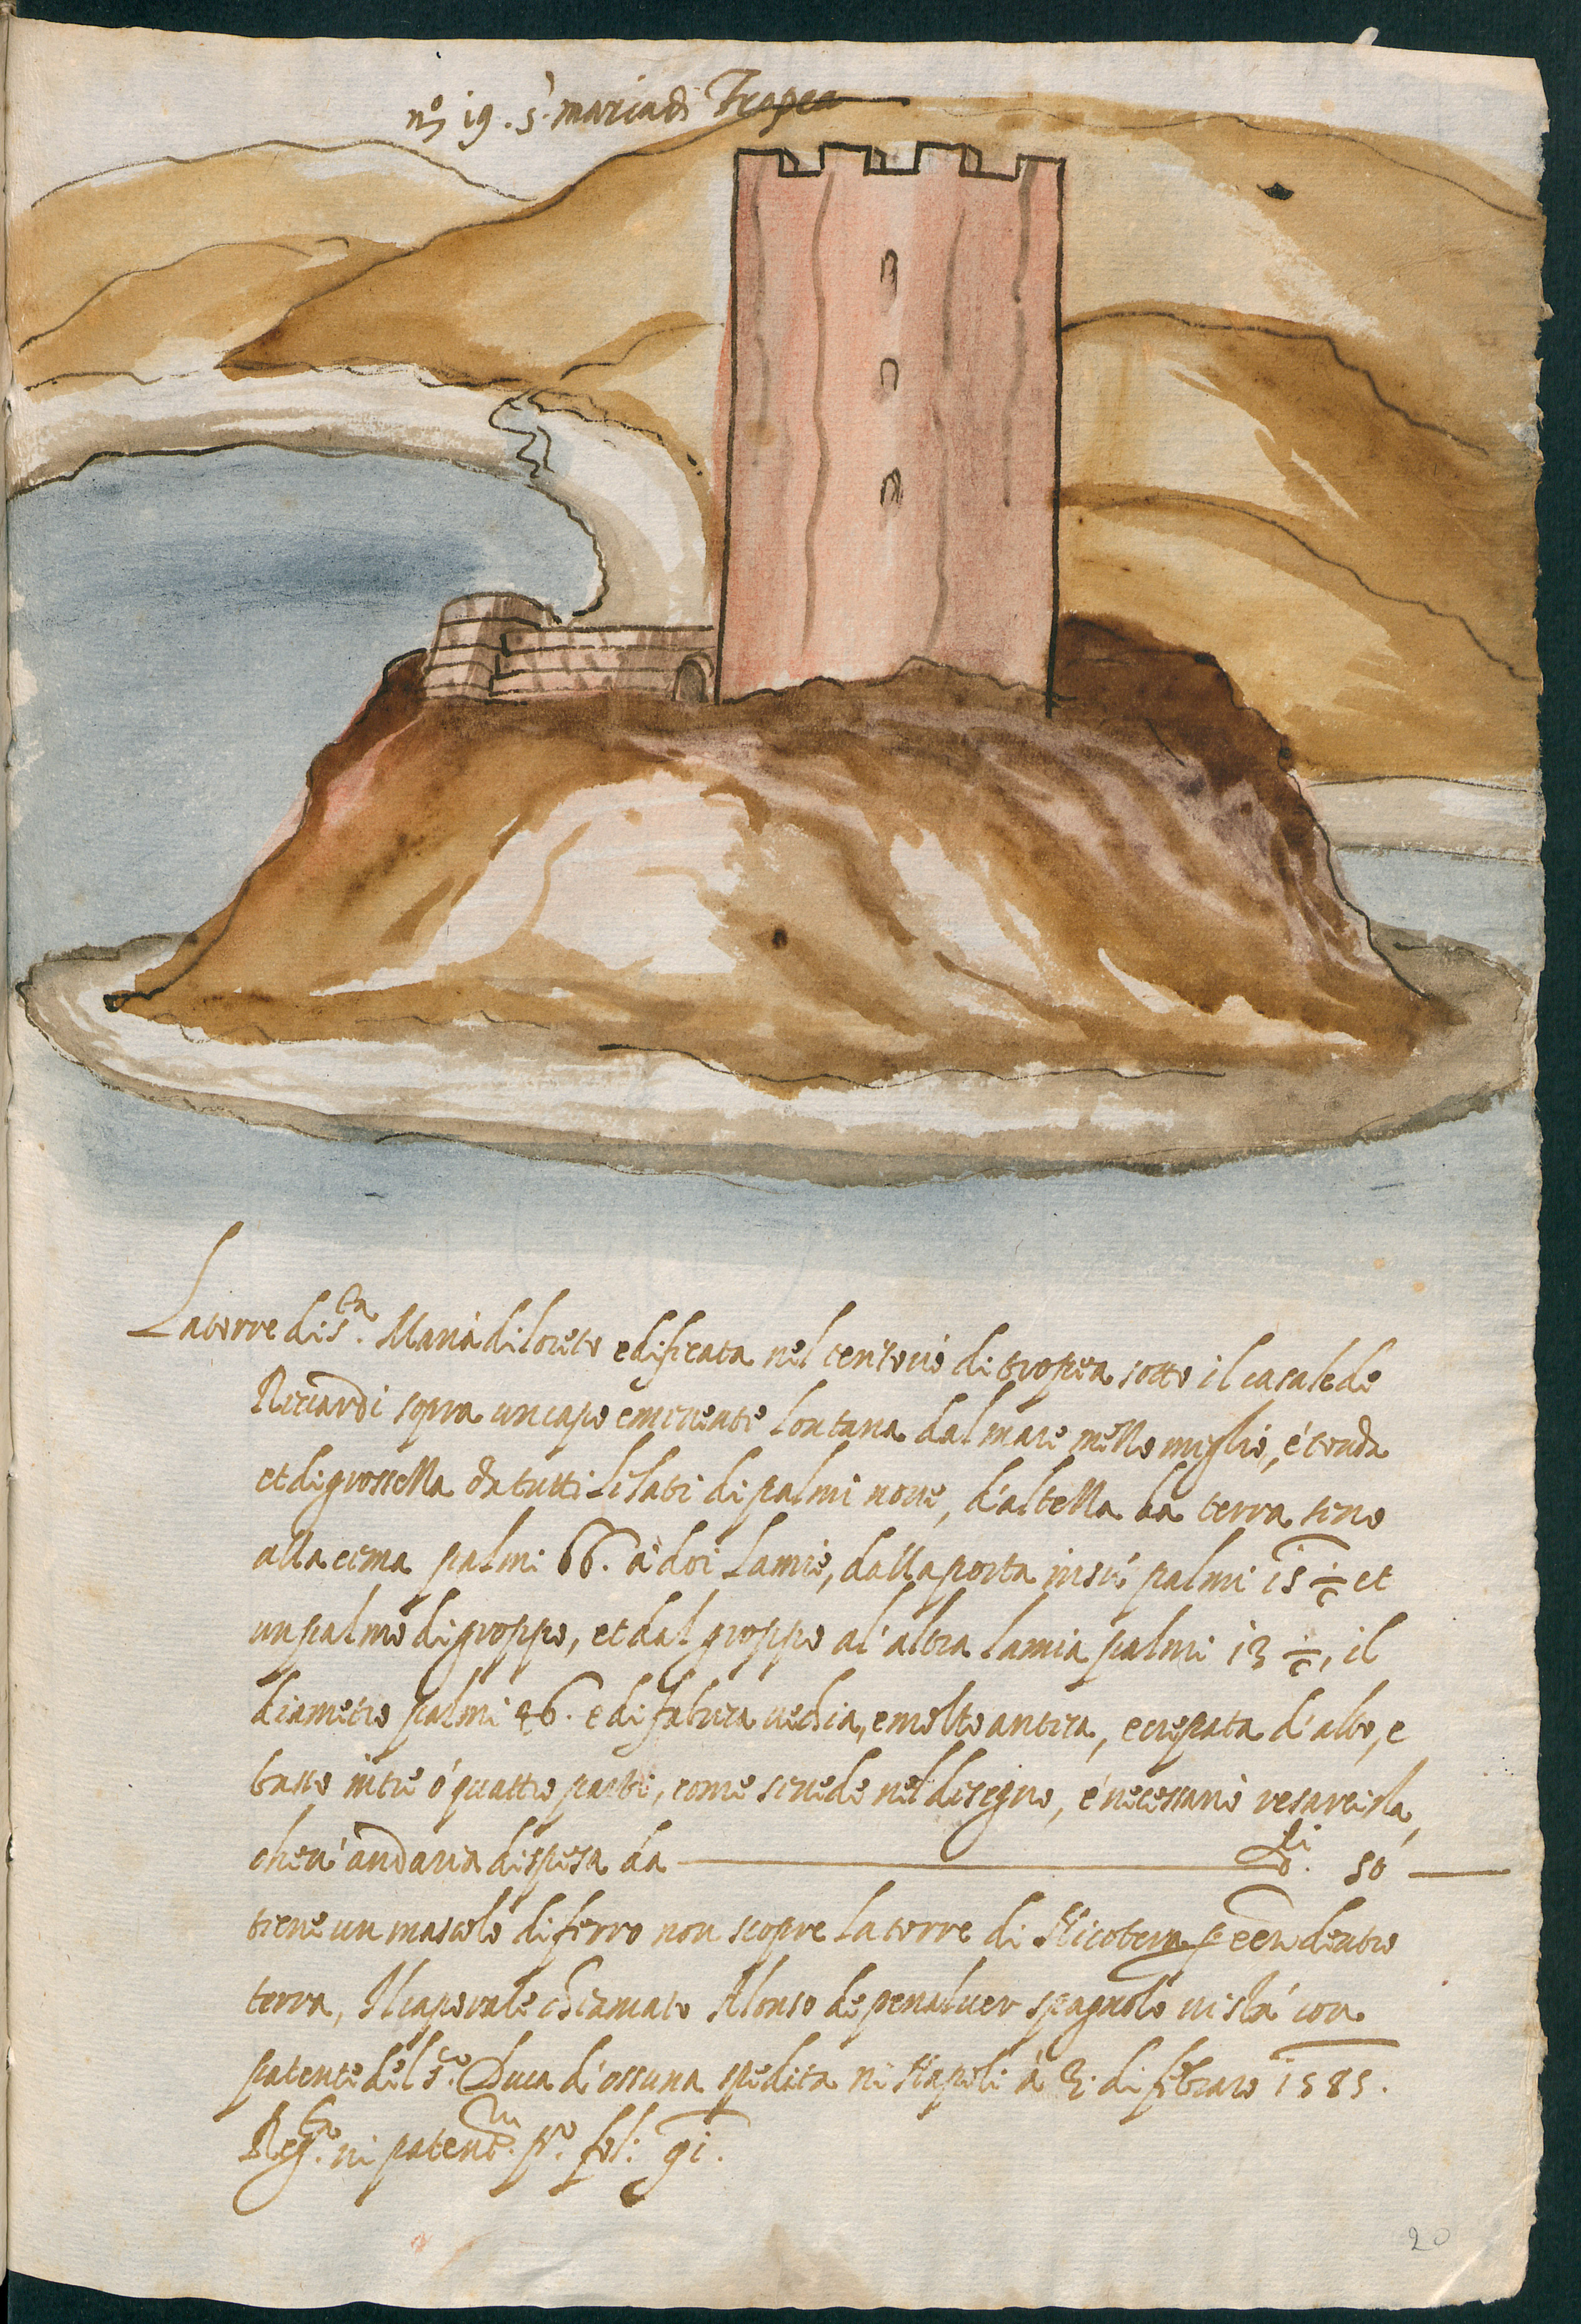 nº 19. S. maria di Tropea
La torre di s.ta Maria di loreto edificata nel tenitorio di tropea sotto il casale de
Ricciardi sopra un capo eminente lontana dal mare mezzo miglio, é tonda
et di grossezza da tutti li lati di palmi nove, d'altezza da terra sino
alla cima palmi 66. á doi lamie, dalla porta insú palmi 15 1/2 et
un palmo di groppo, et dal groppo al' altra lamia palmi 13 1/2, il
diametro palmi 46. e di fabrica vechia, e molto antica, e crepata d'alto, e
basso in tre ó quattro parti, come si vede nel disegno, é necessario resarcirla,
che v'andaria di spesa da di 50
tiene un mascolo di ferro non scopre la torre di Nicotera p eere dentro
terra, Il caporale chiamato Alonso de penalver spagnolo vi stá con
patente del s.re Duca d'ossuna spedita in Napoli á di febraro 1585.
Reg.ta in patent. p.º fol: 91.
20